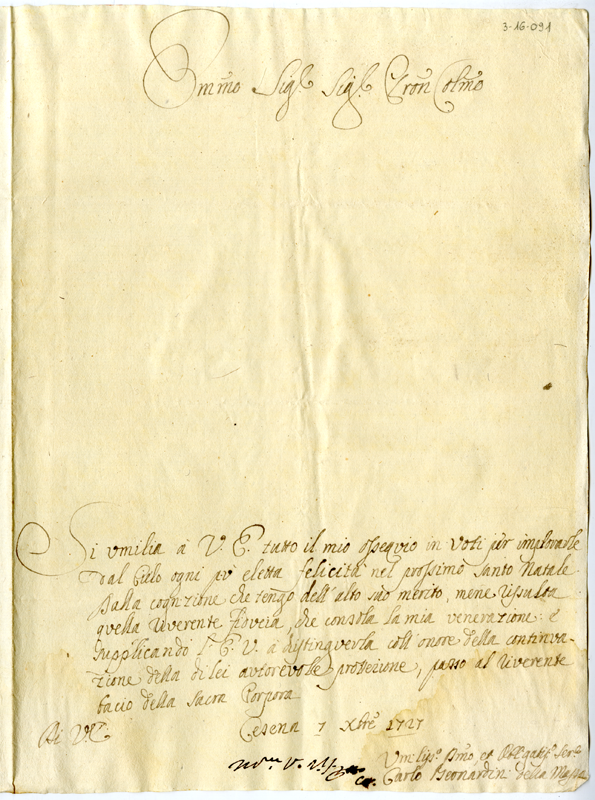 3-16-091
Emmo Sigr Sigr Pron Colmo
Si umilia à V. E. tutto il mio ossequio in voti per implorarle
dal Cielo ogni più eletta felicità nel prossimo Santo Natale
Dalla cognizione che tengo dell' alto suo merito, mene risulta
quella riverente fiducia, che consola la mia venerazione: e
supplicando l' E. V. à distinguerla coll' onore della continua-
zione della di lei autorevole protezione, passo al riverente
bacio della Sacra Porpora
Di V. E. Cesena 7 Xbre 1727
Umiliss.o Dmo et Obbligatis. Serre
Carlo Leonardin: della Massa